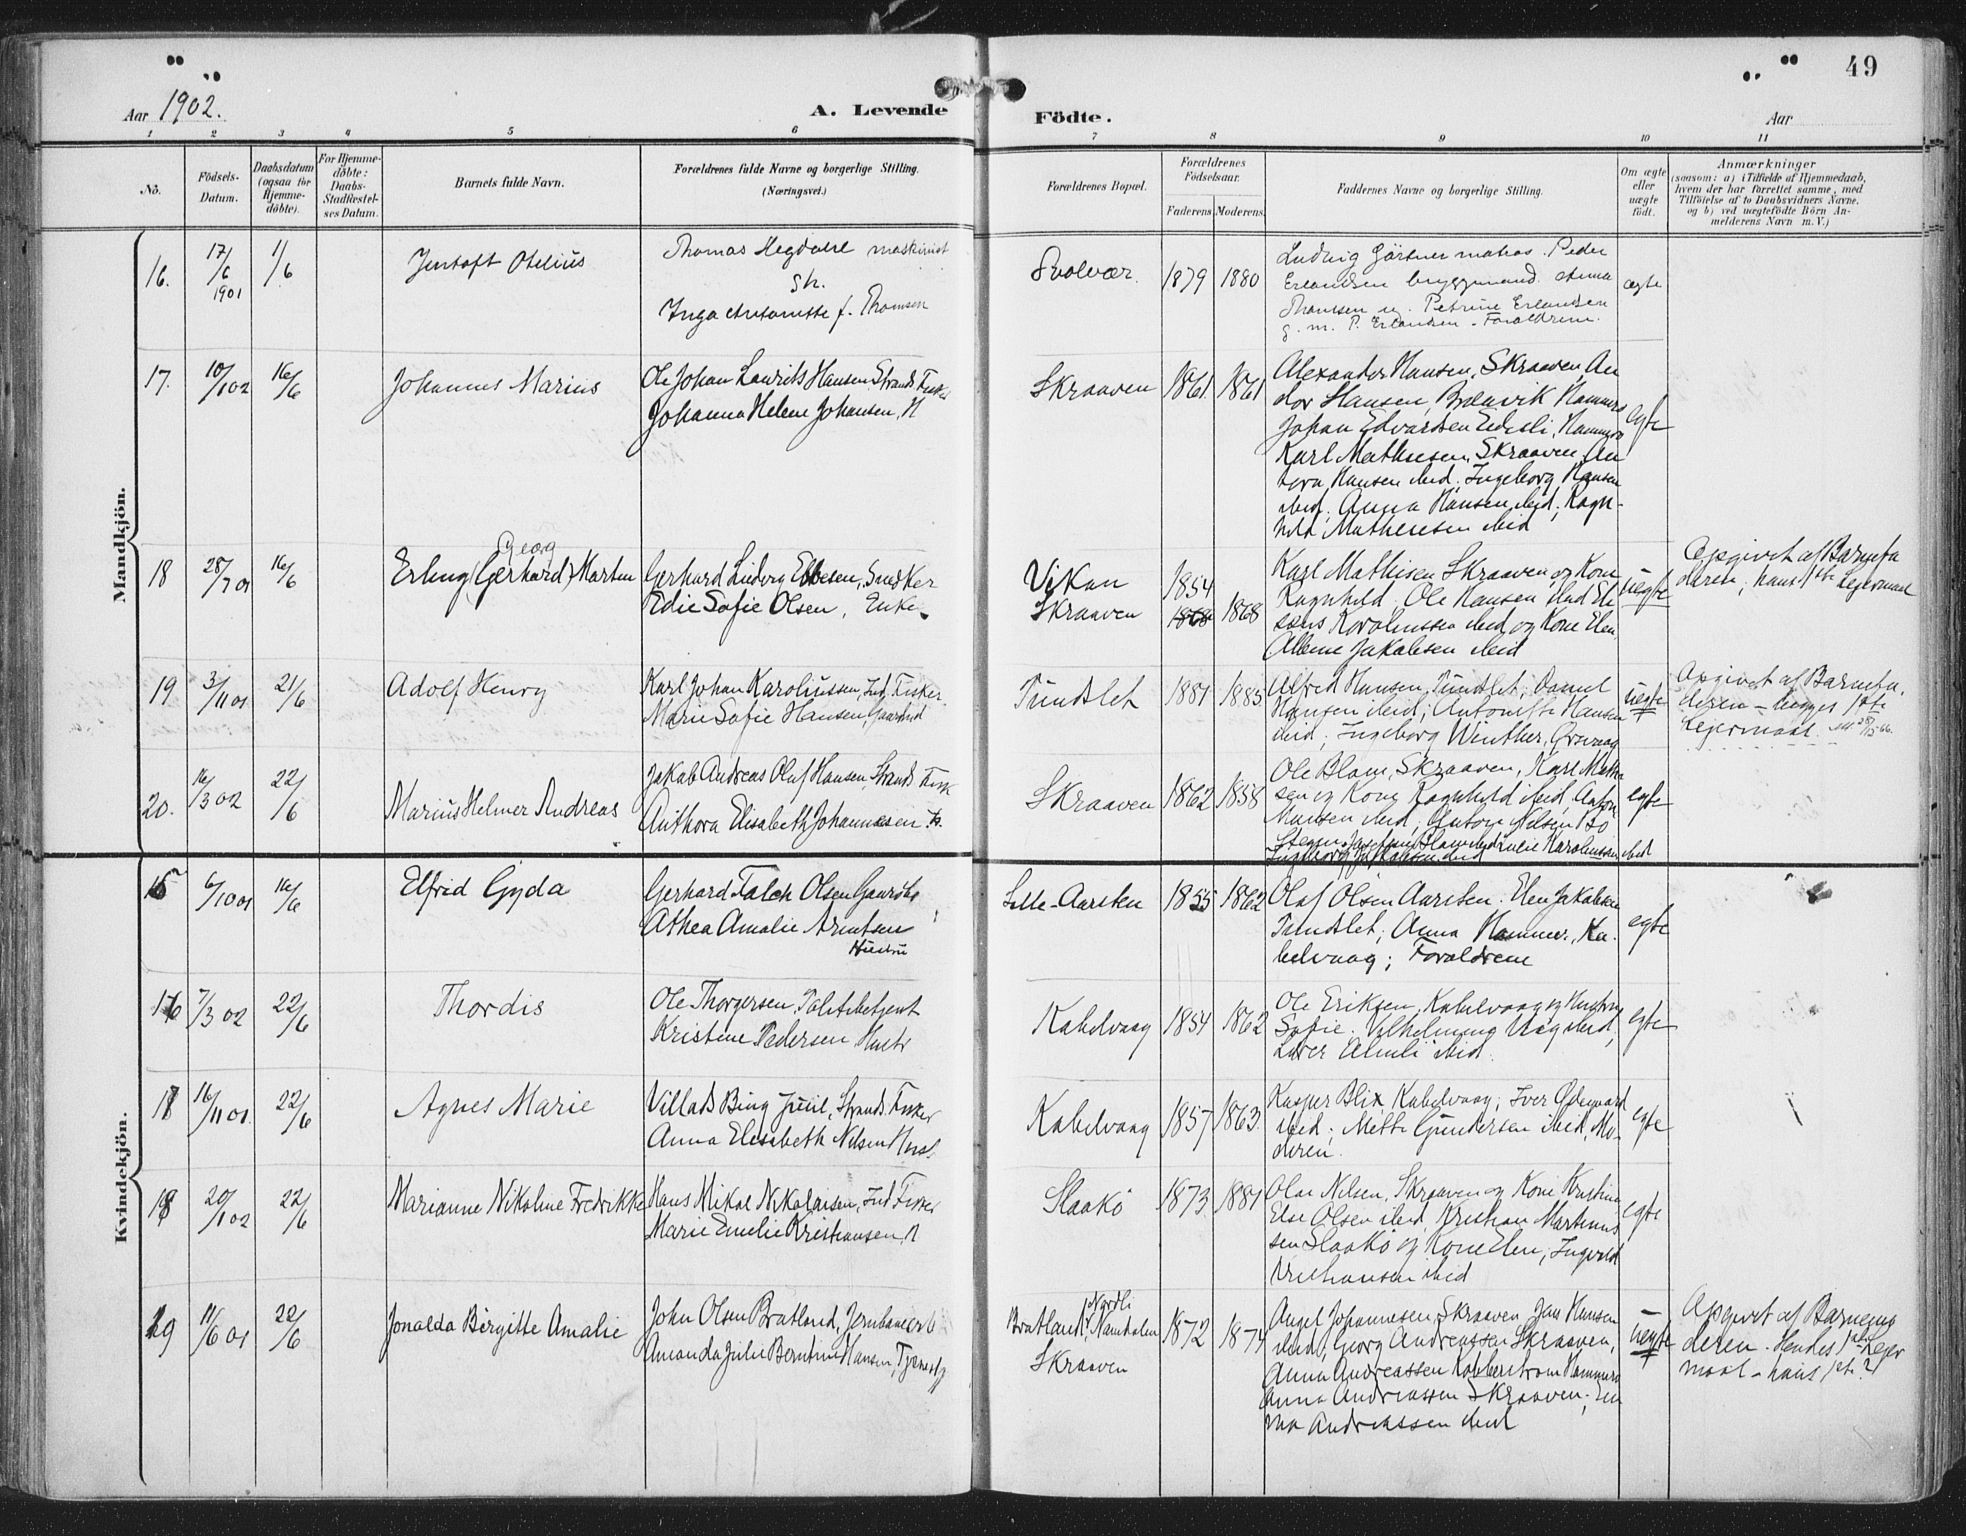 49
Aar 1902.
A. Levende
Födte.
Aar
1 2 3 4 5 6 7 8 9 10 11
No.
Födsels-
Datum.
Daabsdatum
(ogsaa for
Hjemme-
döbte).
For Hjemme-
döbte:
Daabs-
Stadfæstel-
ses Datum.
Barnets fulde Navn.
Forældrenes fulde Navne og borgerlige Stilling.
(Næringsvei.)
Forældrenes Bopæl.
Forældrenes
Födselsaar.
Faderens
Moderens.
Faddernes Navne og borgerlige Stilling.
Om ægte
eller
uægte
födt.
Anmærkninger
(saasom: a) i Tilfælde af Hjemmedaab,
hvem der har forrettet samme, med
Tilföielse af to Daabsvidners Navne.
og b) ved uægtefödte Börn An-
melderens Navn m.V.)
Mandkjön.
16.
17/6
1901
1/6
Jentoft Otelius
Thomas Hegdahl maskinist
Sh.
Inga Antonette f. Thomsen
Svolvær.
1879
1880
Ludvig Gärtner matros. Peder
Erlandsen bryggemand. Anna
Thomsen ug. Petrine Erlandsen
g. m. P. Erlandsen - Forældrene.
ægte
17.
10/1 02
16/6
Johannes Marius
Ole Johan Laurits Hansen Strands. Fisker
Johanna Helene Johansen, H
Skraaven
1861
1861
Alexander Hansen, Skraaven, An
dor Hansen, Brænvik Hammerö
Johan Edvardsen Hammerö
Karl Mathiesen, Skraaven, An
tora Hansen ibid; Ingeborg Hansen
ibid; Anna Hansen ibid; Ragn-
hild Mathiesen ibid
egte
18
28/7 01
16/6
Georg
Erling (Gerhard) Morten
Gerhard Ludvig Ebbesen, Snedker
Edie Sofie Olsen, Enke.
Vikan
Skraaven
1854
1868
1868
Karl Mathisen Skraaven og Kone
Ragnhild, Ole Hansen ibid
Karoliussen ibid og Kone Elen
Jakobsen ibid
uegte
Opgivet af Barnefa
deren; hans 1ste Leiermaal
19
3/11 01
21/6
Adolf Henry
Karl Johan Karoliussen, Ind. Fisker
Marie Sofie Hansen, Gaardbd
Tundslet
1881
1885
Alfred Hansen, Tundslet; Daniel
Hansen ibid; Antonette Hansen
ibid; Ingeborg Winther, Örsvaag
uegte
Opgivet af Barnefa.
deren - begges 1ste
Leiermaal.
20.
16/3 02
22/6
Marius Helmer Andreas
Jakob Andreas Oluf Hansen, Strands. Fisk
Anthora Elisabeth Johannesen. H.
Skraaven
1862
1858
Ole Blom, Skraaven, Karl Mathi
sen og Kone Ragnhild ibid, Anton
Hansen ibid; Anton Nilsen
Karoliussen ibid
Ingeborg Jakobsen ibid
egte
Kvindekjön.
15
6/10 01
16/6
Elfrid Gyda
Gerhard Falck Olsen Gaardbr
Athea Amalie Arntsen
Hustru
Lille-Aarsten
1855
1862
Olaf Olsen Aarsten. Elen Jakobsen
Tundslet; Anna Hammer, Ka-
belvaag; Forældrene
egte
16
7/3 02
22/6
Thordis
Ole Thorgersen, Politibetjent
Kristine Pedersen Hustr
Kabelvaag
1854
1862
Ole Eriksen, Kabelvaag og Hustru
Sofie; Vilhelmine ibid,
ibid.
egte
17
16/11 01
22/6
Agnes Marie
Villads Bing Juul, Strands. Fisker
Anna Elisabeth Nilsen Hus.
Kabelvaag
1857
1863
Kasper Blix, Kabelvaag; Iver Ödegaard
ibid; Mette Gundersen ibid, Mo-
deren.
egte
18
20/1 02
22/6
Marianne Nikoline Fredrikke
Hans Mikal Nikolaisen, Ind. Fisker
Marie Emelie Kristiansen, H
Slaakö
1873
1881
Olaf Nilsen, Skraaven og Kone Kristine
Else Olsen ibid, Kristian Martinus
sen Slaakö og Kone Elen, Ingvald
Kristiansen ibid
egte
19
11/6 01
22/6
Jonalda Birgitte Amalie
John Olsen Bratland, Jernbanearb
Amanda Julie Berntine Hansen, Tjenestp
Bratland, Nordli
Namdalen
Skraaven
1872
1874
Angel Johannesen Skraaven, Jan Hansen
ibid, Georg Andreassen Skraaven,
Anna Andreassen Hammerö
Anna Andreassen Skraaven; Em
ma Andreassen ibid
uegte
Opgivet af Barnemo
deren. Hendes 1ste Leier
maal - hans 1ste?